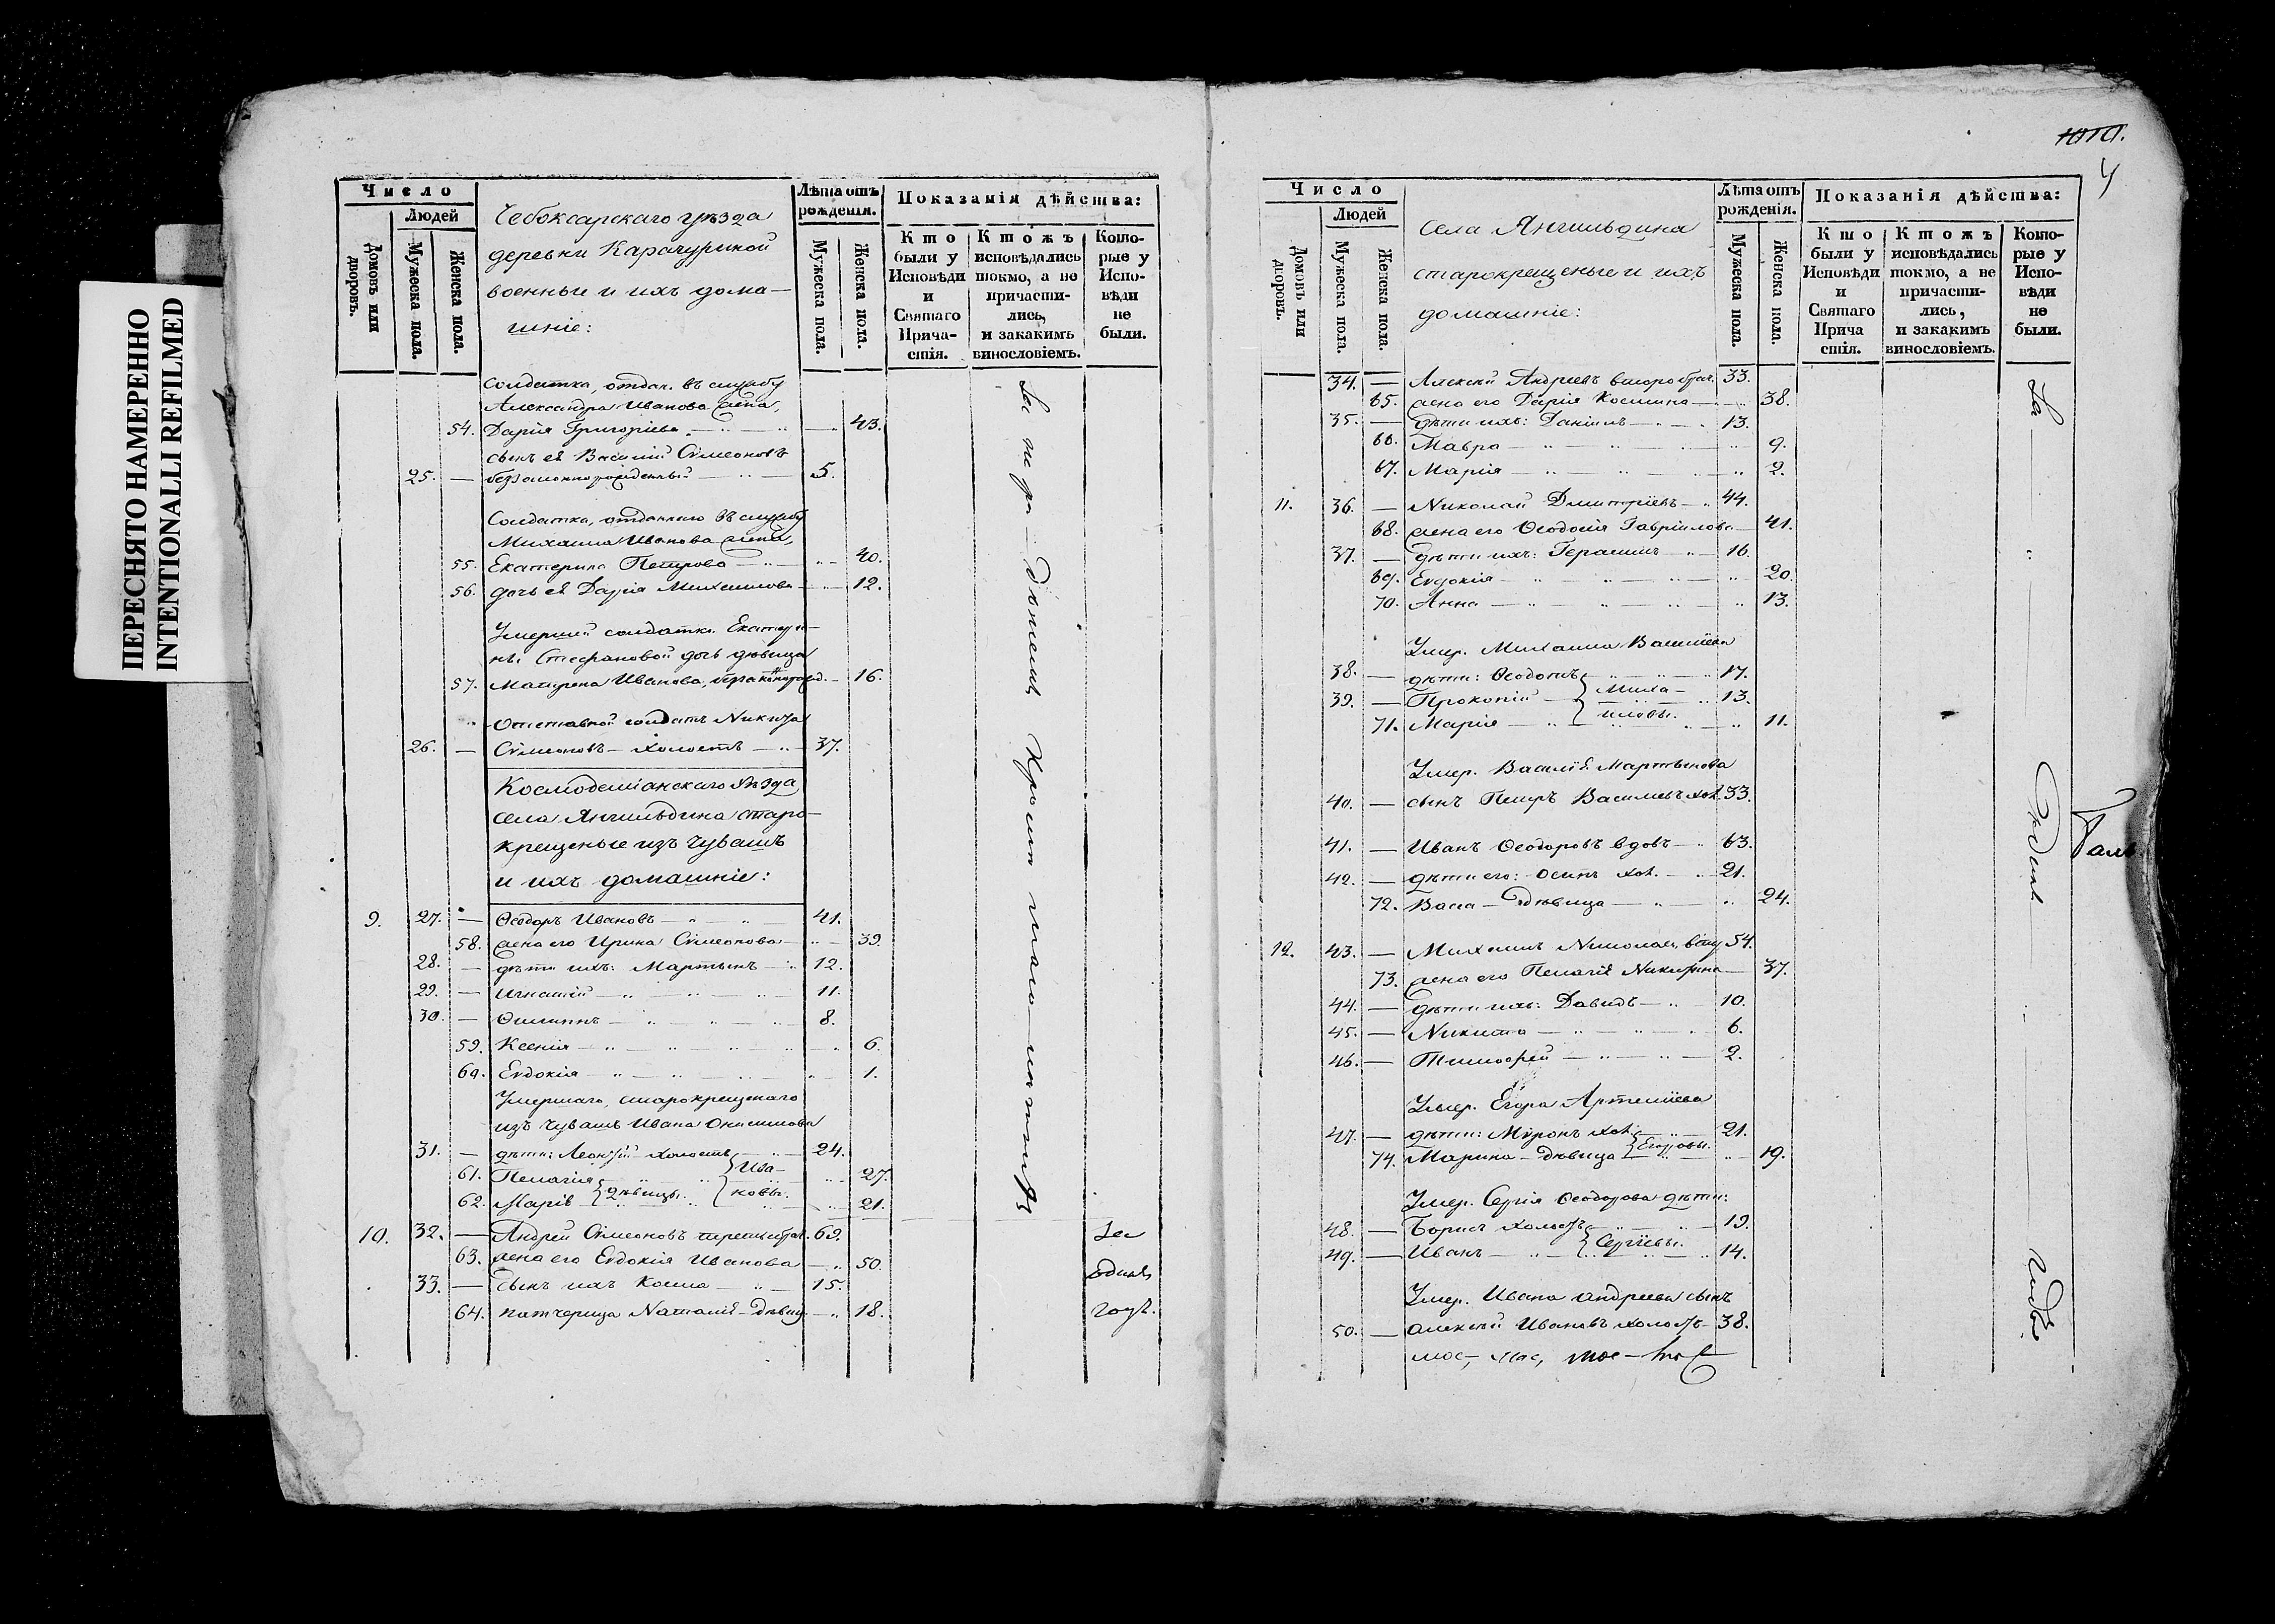 ПЕРЕСНЯТО НАМЕРЕННО
INTENTIONALLI REFILMED
Число
Людей
Домовъ или дворовъ.
Мужеска пола.
Женска пола.
Чебоксарскаго уѣзда
деревни Карачуриной
военные и ихъ дома-
шніе:
Лѣта отъ рожденія.
Мужеска пола.
Женска пола.
Показанія дѣйства:
Кто были у Исповѣди и Святаго Причастія.
Ктожъ исповѣдались токмо, а не причастились, и закакимъ винословіемъ.
Которые у Исповѣди не были.
Солдатка, отдан. въ службу
Александра Иванова жена,
54. Дарія Григоріева 43.
сынъ её Василій Сѵмеоновъ
25. — беззаконнорожденный 5.
Солдатка, отданнаго въ службу
Михаила Иванова жена,
55. Екатерина Петрова 40.
56. дочь её Дарія Михаилова 12.
Умершей солдатки Екатери-
ны Стефановой дочь дѣвица
57. Матрена Иванова, 16.
Отставной солдатъ Никита
26. — Сѵмеоновъ — холостъ 37.
Космодеміанскаго уѣзда
села Янгильдина старо-
крещеные изъ чувашъ
и ихъ домашніе:
9. 27. — Ѳеодоръ Ивановъ 41.
58. жена его Ирина Сѵмеонова 39.
28. — дѣти ихъ: Мартынъ 12.
29. — Игнатій 11.
30. — Филиппъ 8.
59. Ксенія 6.
60. Евдокія 1.
Умершаго, старокрещенаго
изъ чувашъ Ивана Онисимова
31. — дѣти: Леонтій холостъ 24.
61. Пелагія дѣвицы Ива- 27.
62. Марія новы. 21.
10. 32. — Андрей Сѵмеоновъ 69. За
63. жена его Евдокія Иванова 50. однимъ
33. — сынъ ихъ Косма 15.
64. патчерица Наталія — дѣвиц. 18.
4
Число
Людей
Домовъ или дворовъ.
Мужеска пола.
Женска пола.
села Янгильдина
старокрещеные и ихъ
домашніе:
Лѣта отъ рожденія.
Мужеска пола.
Женска пола.
Показанія дѣйства:
Кто были у Исповѣди и Святаго Прича стія.
Ктожъ исповѣдались токмо, а не причастились, и закакимъ винословіемъ.
Которые у Исповѣди не были.
34. — Алексѣй Андреевъ второбрач. 33.
65. жена его Дарія Космина 38.
35. — дѣти ихъ: Даніилъ 13.
66. Мавра 9.
67. Марія 2.
11. 36. — Николай Димитріевъ 44.
68. жена его Ѳеодосія Гавріилова 41.
37. — дѣти ихъ: Герасимъ 16.
69. Евдокія 20.
70. Анна 13.
Умер. Михаила Василіева
38. — дѣти: Ѳеодотъ 17.
39. — Прокопій Миха- 13.
71. Марія иловы. 11.
Умер. Василія Мартынова
40. — сынъ Петръ Васильевъ хол. 33.
41. — Иванъ Ѳеодоровъ вдовъ 63.
42. — дѣти его: Осипъ хол. 21.
72. Васса — дѣвица 24.
12. 43. — Михаилъ Николаев. 54.
73. жена его Пелагія Никитина 37.
44. — дѣти ихъ: Давидъ 10.
45. — Никита 6.
46. — Тимоѳей 2.
Умер. Егора Артеміева
47. — дѣти: Мѵронъ хол. 21.
74. Марина — дѣвица Егоровы. 19.
Умер. Сергія Ѳеодорова дѣти:
48. — Борисъ холостъ 19.
49. — Иванъ Сергіевы. 14.
Умер. Ивана Андреева сынъ
50. — Алексѣй Ивановъ холостъ 38.